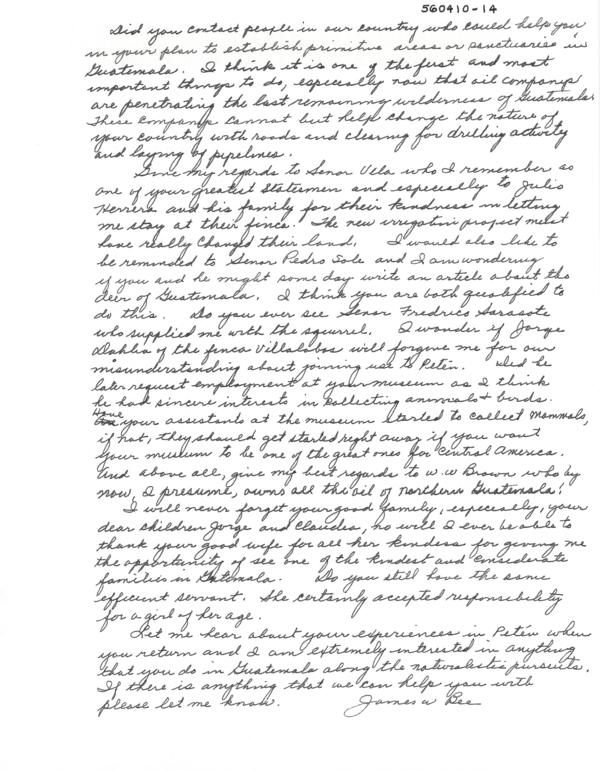 560410-14
Did you contact people in our country who could help you
in your plan to establish primitive areas or sanctuaries in
Guatemala. I think it is one of the first and most
important things to do, especially now that oil companys
are penetrating the last remaining wilderness of Guatemala.
These companys cannot but help change the nature of
your country with roads and clearing for drilling activity
and laying of pipelines.
Give my regards to Senor Vela who I remember as
one of your greatest Statesmen and especially to Julio
Herrera and his family for their kindness in letting
me stay at their finca. The new irrigation project must
have really changed their land. I would also like to
be reminded to Senor Pedro Sole and I am wondering
if you and he might some day write an article about the
deer of Guatemala. I think you are both qualified to
do this. Do you ever see Senor Fredrico Sarasote
who supplied me with the squirrel. I wonder if Jorge
Dahlia of the finca Villalobos will forgive me for our
misunderstanding about joining use to Petén. Did he
later request employment at your museum as I think
he had sincere interests in collecting animals + birds.
Have your assistants at the museum started to collect mammals,
if not, they should get started right away if you want
your museum to be one of the great ones for Central America.
And above all, give my best regards to W. W Brown who by
now, I presume, owns all the oil of northern Guatemala!
I will never forget your good family, especially, your
dear children Jorge and Claudia, no will I ever be able to
thank your good wife for all her kindess for giving me
the opportunity of see one of the kindest and considerate
families in Guatemala. Do you still have the same
efficient servant. She certainly accepted responsibility
for a girl of her age.
Let me hear about your experiences in Petén when
you return and I am extremely interested in anything
that you do in Guatemala along the naturalistic pursuits.
If there is anything that we can help you with
please let me know. James W Bee